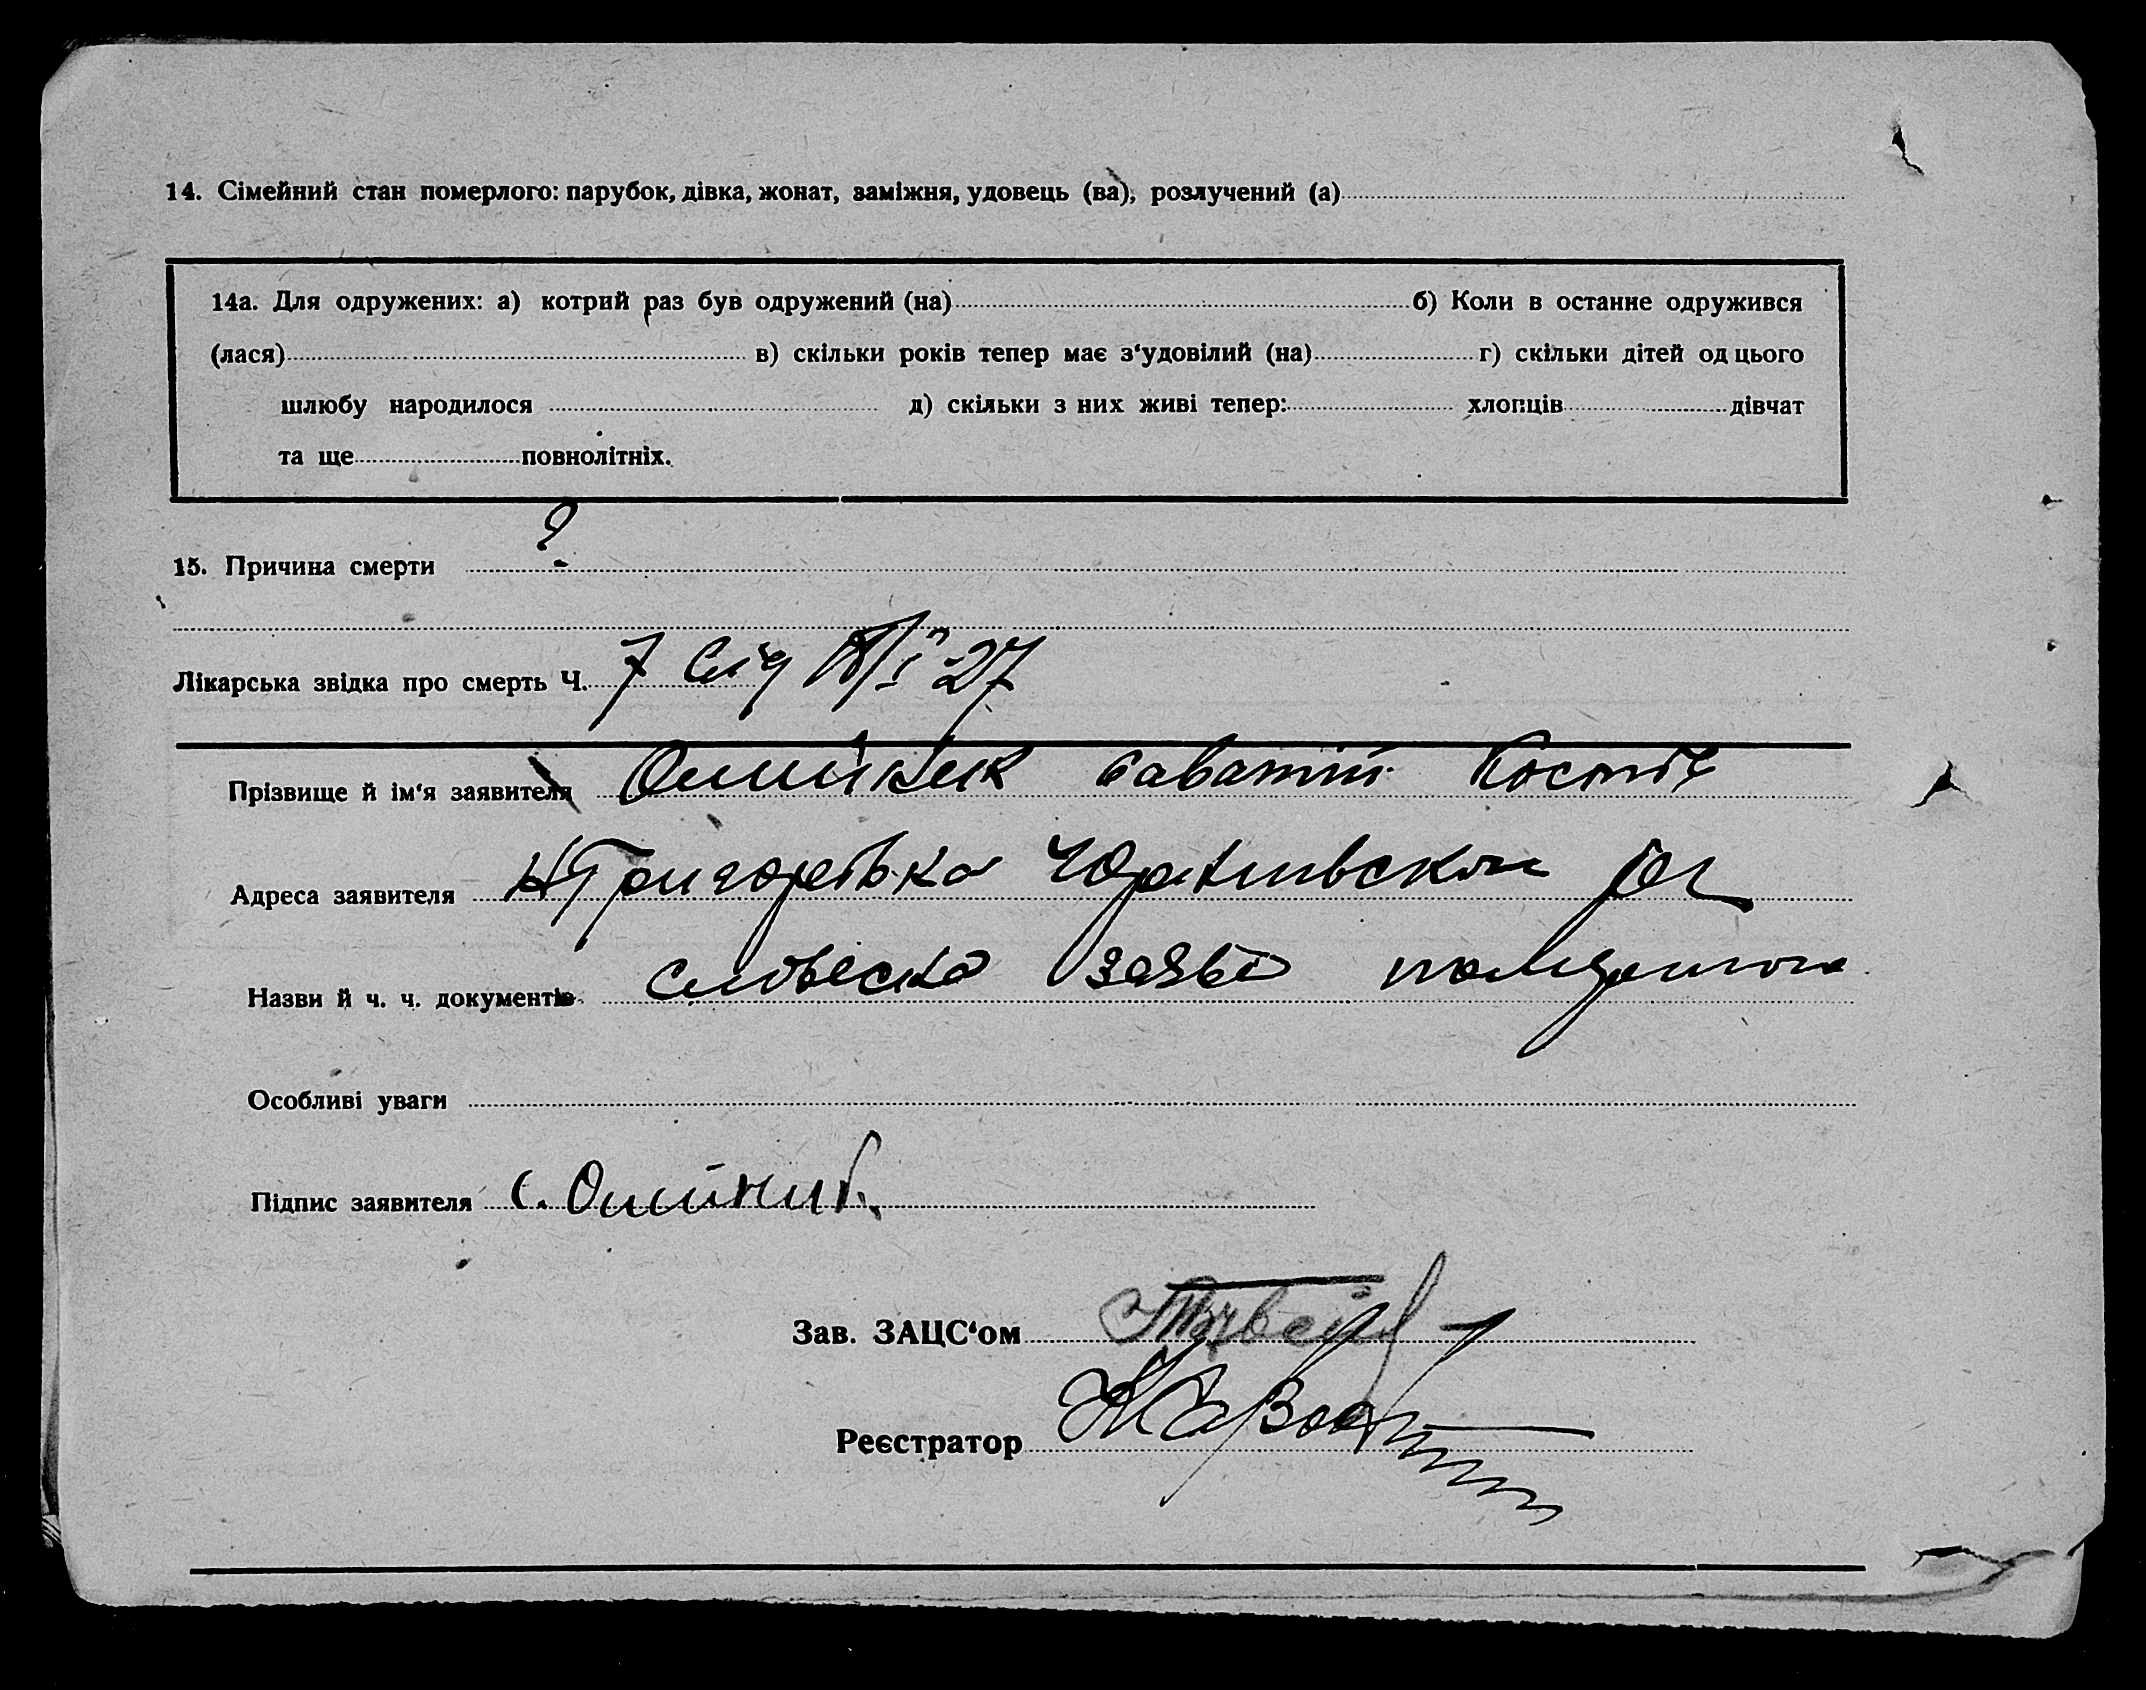 14. Сімейний стан померлого: парубок, дівка, жонат, заміжня, удовець (ва), розлучений (а)
14а. Для одружених: а) котрий раз був одружений (на) б) Коли в останнє одружився
(лася) в) скільки років тепер має з‘удовілий (на) г) скільки дітей од цього
шлюбу народилося д) скільки з них живі тепер: хлопців дівчат
та ще повнолітніх.
15. Причина смерти ?
Лікарська звідка про смерть Ч. 7 27
Прізвище й ім‘я заявителя Олійник Саватій
Адреса заявителя Григорівка
Назви й ч. ч. документів словесна заява
Особливі уваги
Підпис заявителя С. Олійник
Зав. ЗАЦС‘ом
Реєстратор